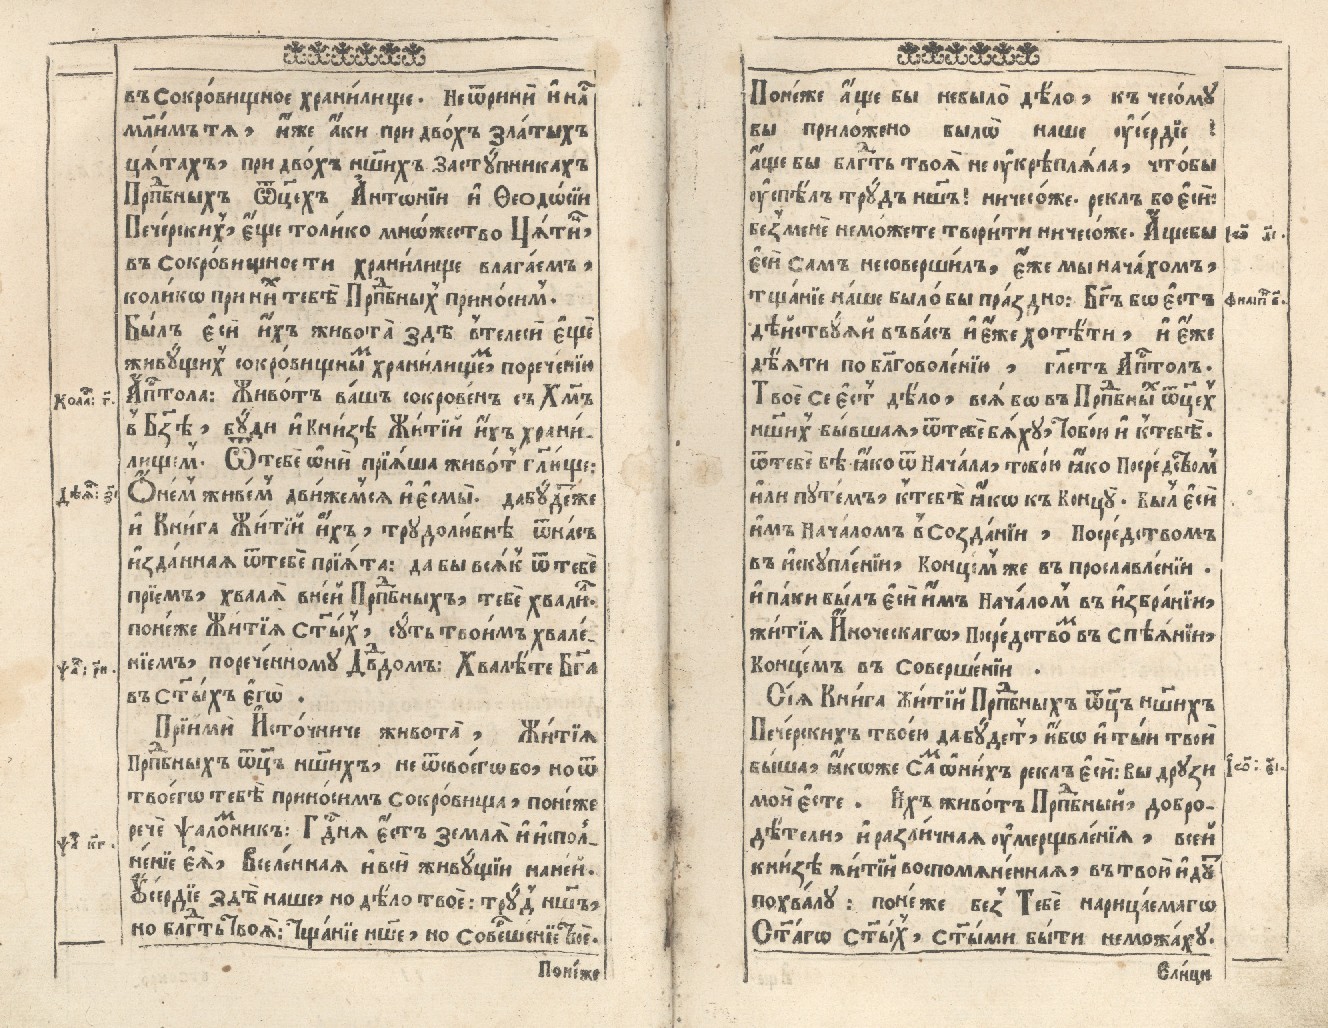 въ Сокро́вищное храни́лище. Не ѿри́ни и҆ на́съ
мл҃и́мътѧ, и҆́же а҆́ки при дво́хъ зла́тыхъ
цѧ́тахъ, при дво́хъ нш҃ихъ засту́пникахъ
Прпⷣбныхъ Ѿц҃ехъ Антѡ́нїи и҆ Ѳеодо́сїи
Пече́рскихъ, є҆ще толи́ко мно́жество Цѧ́тъ,
въ Сокро́вищное ти храни́лище влага́емъ,
коли́кѡ при ни́хъ тебѣ̀ Прпⷣбныхъ прино́симъ.
Бы́лъ є҆сѝ и҆́хъ живота̀ здѣ̀ в̾телесѝ є҆щѐ
живу́щихъ сокро́вищнымъ храни́лищемъ, порече́нїю
Апⷭ҇тола: Живо́тъ ва́шъ сокрове́нъ съ Хм҃ъ
в̾ Бз҃ѣ, бу́ди и҆ Кни́зѣ Жи́тїй и҆́хъ храни́-
лищемъ. Ѿ тебе ѡ҆нѝ прїѧ́ша живо́тъ гл҃ище:
Ѡ҆ не́мъ живе́мъ дви́жемсѧ и҆ є҆смы̀. да бу́детже
и҆ Кни́га Жи́тїй и҆́хъ, трудолю́бнѣ ѿ на́съ
и҆зда́ннаѧ ѿ тебѐ прїѧ́та: да бы всѧ́къ ѿ тебѐ
прїе́мъ, хвалѧ̀ в не́й Прпⷣбныхъ, тебѐ хвали́лъ.
поне́же Жи́тїѧ Ст҃ы́хъ, су́ть твои́мъ хвале́-
нїемъ, порече́нному Дв҃домъ: Хвалѣ́те Бг҃а
въ Ст҃ы́хъ є҆гѡ̀.
Прїимѝ И҆сто́чниче живота̀, Жи́тїѧ
Прпⷣбныхъ ѿц҃ъ нш҃ихъ, не ѿ своегѡ бо, но ѿ
твоегѡ тебѣ̀ прино́симъ сокро́вища, поне́же
рече̏ ѱало́мникъ: Гдⷭ҇нѧ є҆́стъ землѧ̀ и҆ и҆спол-
не́нїе є҆ѧ̀, Вселе́ннаѧ и҆ всѝ живу́щїи на не́й.
Ѹ҆се́рдїе здѣ̀ наше, но дѣ́ло твоѐ: тру́дъ нш҃ъ,
но блгⷣть твоѧ̀: тща́нїе нш҃е, но соверше́нїе твоѐ.
Поне́же
Колаⷭ: г҃.
Дѣѧ́ⷩ: з҃і
Ѱаⷧ: р҃н.
Ѱаⷧ к҃г.
Поне́же а҆́ще бы небыло̀ дѣ́ло, къ чесо́му
бы прило́жено былѡ̀ наше ѹ҆се́рдїе ?
а҆́ще бы блгⷣть твоѧ̀ не ѹ҆крѣплѧ́ла, что́бы
ѹ҆спѣ́лъ тру́дъ нш҃ъ? ничесо́же. реклъ бо є҆сѝ:
без̾ менѐ немо́жете твори́ти ничесо́же. А҆́щебы
є҆сѝ Самъ несоверши́лъ, є҆́же мы нача́хомъ,
тща́нїе на́ше было́ бы пра́здно: Бг҃ъ бѡ є҆́стъ
дѣ́йствуѧй въ ва́съ и҆ є҆́же хотѣ́ти, и҆ є҆́же
дѣ́ѧти по бл҃говоле́нїю, гл҃етъ Апⷭ҇толъ.
Твоѐ се є҆́стъ дѣ́ло, всѧ̀ бѡ въ Прпⷣбныхъ ѿц҃ехъ
нш҃ихъ бы́вшаѧ, ѿ тебе бѧ́ху, Тобо́ю и҆ к̾тебѣ̀.
ѿ тебе бѣ ꙗ҆́ко ѿ Нача́ла, тобо́ю ꙗ҆́ко Посре́дствомъ
и҆лѝ путе́мъ, к̾тебѣ̀ ꙗ҆́кѡ къ Концу̀. Былъ є҆сѝ
и҆̀мъ Нача́ломъ в̾ Созда́нїи, Посре́дствомъ
въ и҆скупле́нїи, Конце́мъже въ прославле́нїи.
и҆ па́ки бы́лъ є҆сѝ и҆̀мъ Нача́ломъ въ и҆збра́нїи,
жи́тїѧ И҆́ноческагѡ, Посре́дствомъ въ спѣѧ́нїи,
Конце́мъ въ Соверше́нїи.
Сїѧ̀ Кни́га Жи́тїй Прпⷣбныхъ ѿц҃ъ нш҃ихъ
Пече́рскихъ твое́ю да бу́детъ, и҆́бѡ и҆ ты́и твоѝ
бы́ша, ꙗ҆́коже Са́мъ ѡ҆ ни́хъ реклъ є҆сѝ: вы дру́зи
моѝ є҆сте. И҆́хъ живо́тъ Прпⷣбный, добро-
дѣ́тели, и҆ разли́чнаѧ ѹ҆мерщвле́нїѧ, все́й
кни́зѣ житїй воспомѧне́ннаѧ, въ твою̀ и҆ду́тъ
похвалу̀: поне́же без̾ Тебѐ нарица́емагѡ
Ст҃а́гѡ ст҃ы́хъ, ст҃ы́ми бы́ти немо́жаху.
Є҆ли́ци
Їѡⷩ҇ є҃і.
Їѡⷩ҇: є҃і.